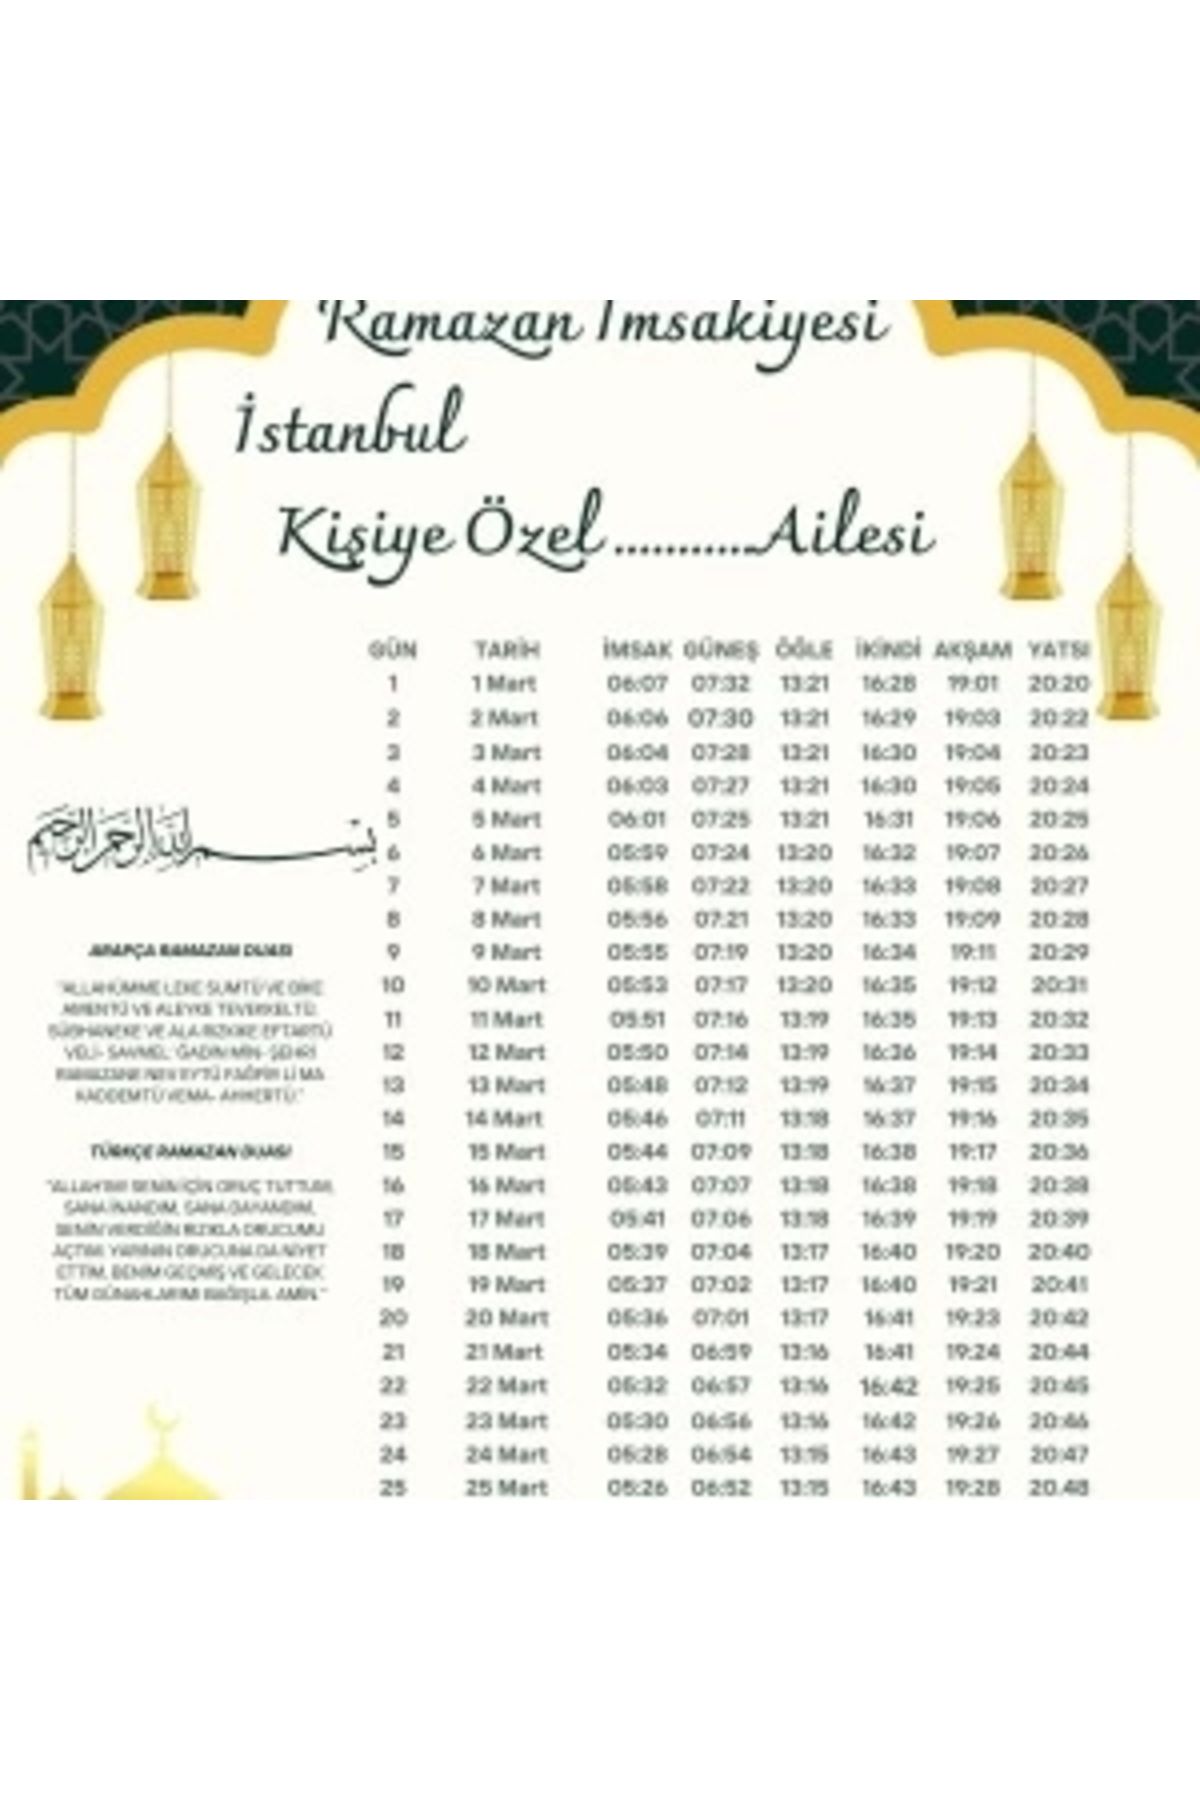 Ramazan İmsakiyesi
İstanbul
Kişiye Özel ...........Ailesi
GÜN TARİH İMSAK GÜNEŞ ÖĞLE İKİNDİ AKŞAM YATSI
1 1 Mart 06:07 07:32 13:21 16:28 19:01 20:20
2 2 Mart 06:06 07:30 13:21 16:29 19:03 20:22
3 3 Mart 06:04 07:28 13:21 16:30 19:04 20:23
4 4 Mart 06:03 07:27 13:21 16:30 19:05 20:24
5 5 Mart 06:01 07:25 13:21 16:31 19:06 20:25
6 6 Mart 05:59 07:24 13:20 16:32 19:07 20:26
7 7 Mart 05:58 07:22 13:20 16:33 19:08 20:27
8 8 Mart 05:56 07:21 13:20 16:33 19:09 20:28
9 9 Mart 05:55 07:19 13:20 16:34 19:11 20:29
10 10 Mart 05:53 07:17 13:20 16:35 19:12 20:31
11 11 Mart 05:51 07:16 13:19 16:35 19:13 20:32
12 12 Mart 05:50 07:14 13:19 16:36 19:14 20:33
13 13 Mart 05:48 07:12 13:19 16:37 19:15 20:34
14 14 Mart 05:46 07:11 13:18 16:37 19:16 20:35
15 15 Mart 05:44 07:09 13:18 16:38 19:17 20:36
16 16 Mart 05:43 07:07 13:18 16:38 19:18 20:38
17 17 Mart 05:41 07:06 13:18 16:39 19:19 20:39
18 18 Mart 05:39 07:04 13:17 16:40 19:20 20:40
19 19 Mart 05:37 07:02 13:17 16:40 19:21 20:41
20 20 Mart 05:36 07:01 13:17 16:41 19:23 20:42
21 21 Mart 05:34 06:59 13:16 16:41 19:24 20:44
22 22 Mart 05:32 06:57 13:16 16:42 19:25 20:45
23 23 Mart 05:30 06:56 13:16 16:42 19:26 20:46
24 24 Mart 05:28 06:54 13:15 16:43 19:27 20:47
25 25 Mart 05:26 06:52 13:15 16:43 19:28 20.48
بسم الله الرحمن الرحيم
ARAPÇA RAMAZAN DUASI
"ALLAHÜMME LEKE SUMTÜ VE BİKE
AMENTÜ VE ALEYKE TEVEKKELTÜ.
SÜBHANEKE VE ALA RIZKIKE EFTARTÜ
VELİ- SAVMEL' ĞADİN MİN- ŞEHRİ
RAMAZANE NEVEYTÜ FAĞFİR Lİ MA
KADDEMTÜ VEMA- AHHERTÜ."
TÜRKÇE RAMAZAN DUASI
"ALLAH'IM! SENİN İÇİN ORUÇ TUTTUM,
SANA İNANDIM, SANA DAYANDIM,
SENİN VERDİĞİN RIZIKLA ORUCUMU
AÇTIM. YARININ ORUCUNA DA NİYET
ETTİM, BENİM GEÇMİŞ VE GELECEK
TÜM GÜNAHLARIMI BAĞIŞLA. AMİN."